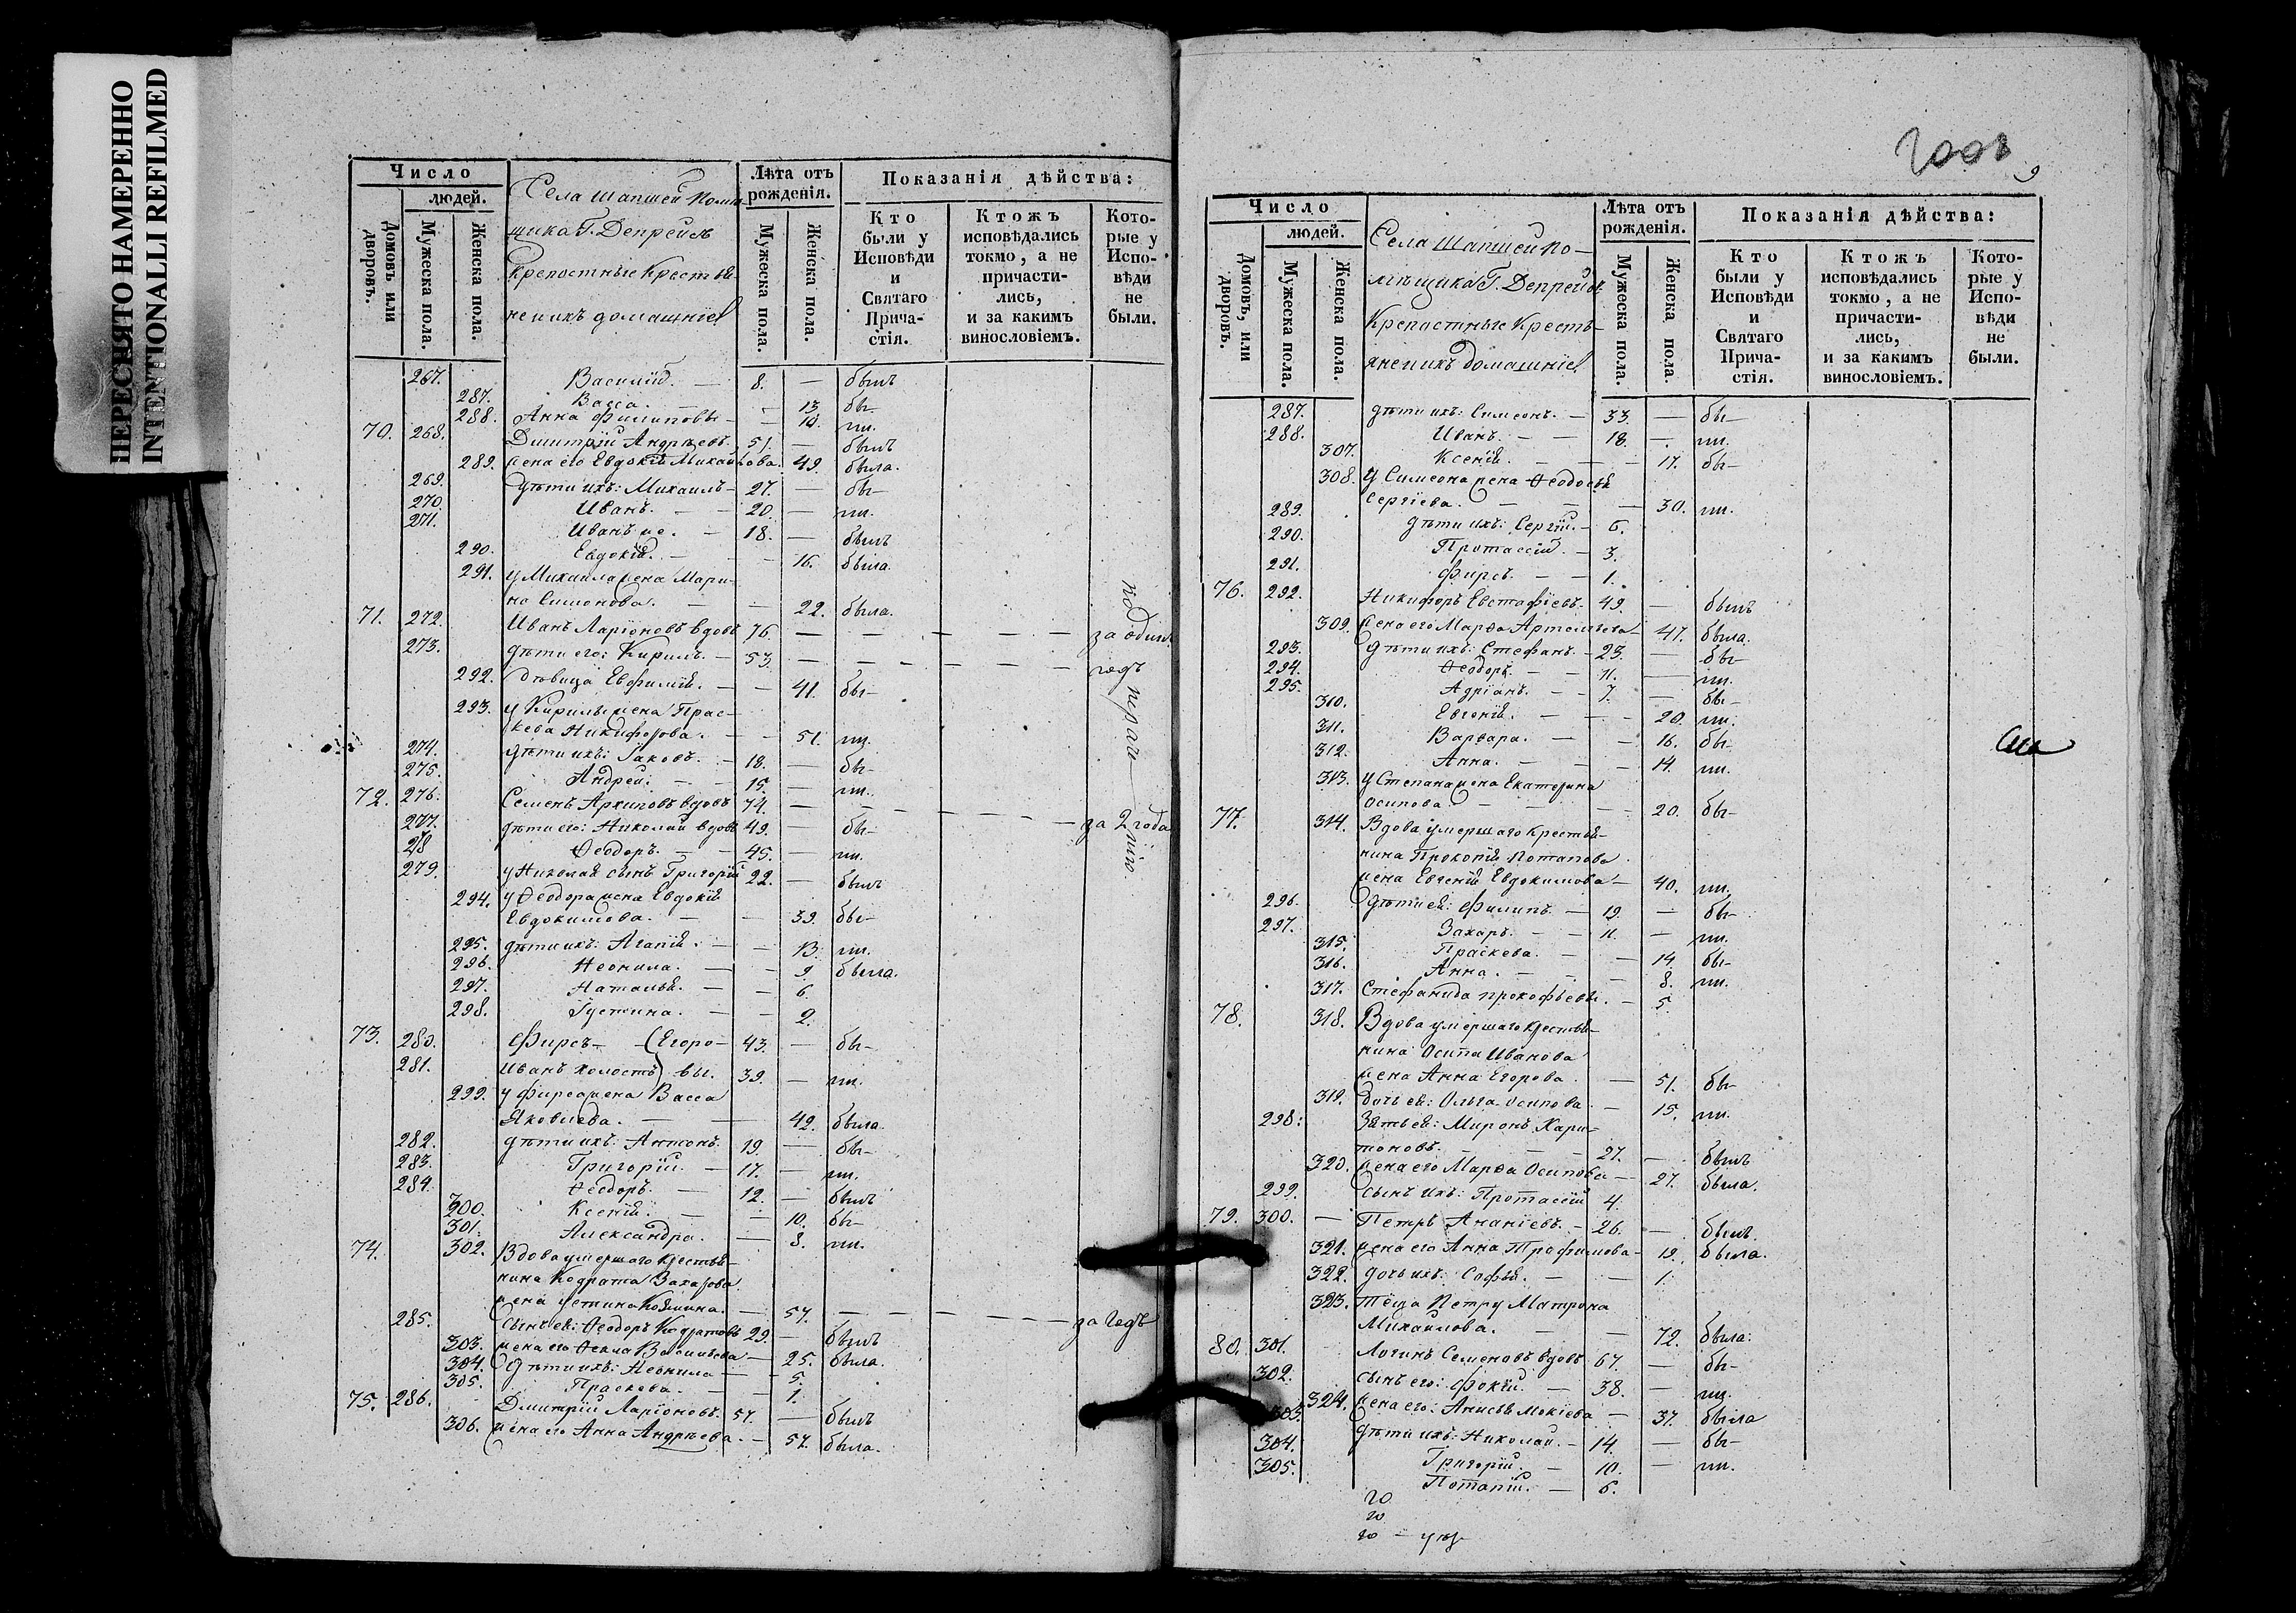 ПЕРЕСНЯТО НАМЕРЕННО
INTENTIONALLI REFILMED
Число
людей.
Домовъ или дворовъ.
Мужеска пола.
Женска пола.
Села Шапшей помѣ-
щика Г. Депрейсъ
крепостные крестья
не и ихъ домашніе
Лѣта отъ рожденія.
Мужеска пола.
Женска пола.
Показанія дѣйства:
Кто были у Исповѣди и Святаго Прича-стія.
Ктожъ исповѣдались токмо, а не причасти-лись, и за какимъ винословіемъ.
Кото-рые у Испо-вѣди не были.
267. Василій. — 8. — былъ
287. Васса. — 13 бы-
288. Анна Филиповы — 10. ли.
70. 268. Дмитрій Андреевъ. 51. — былъ
289. жена его Евдокія Михайлова. 49. была.
269. дѣти ихъ: Михаилъ — 27. — бы-
270. Иванъ. — 20. — ли.
271. Иванъ же. — 18. — былъ
290. Евдокія. — 16. была.
291. у Михаила жена Мари-
на Симонова. — 22. была.
71. 272. Иванъ Ларіоновъ вдовъ 76. — за один.
273. дѣти его: Кирилъ. — 53. — годъ
292. дѣвица Евфимія. — 41. бы-
293. у Кирилы жена Прас-
кева Никифорова. — 51. ли.
274. дѣти ихъ: Іаковъ. — 18. — бы-
275. Андрей. — 15. — ли.
72. 276. Семенъ Архиповъ вдовъ 74. — за 2 года
277. дѣти его: Николай вдовъ 49. — бы-
278 Ѳеодоръ. — 45. — ли.
279. у Николая сынъ Григорій 22. — былъ
294. у Ѳеодора жена Евдокія
Евдокимова. — 39. бы-
295. дѣти ихъ: Агапія. — 13. ли.
296. Неонила. — 9. была.
297. Наталья. — 6.
298. Густина. — 2.
73. 280. Фирсъ — (Егоро- 43. — бы-
281. Иванъ холостъ) вы. 39. — ли.
299. у Фирса жена Васса
Яковлева. — 42. была.
282. дѣти ихъ: Антонъ. 19. — бы-
283. Григорій. — 17. — ли.
284. Ѳеодоръ. — 12. — былъ
300. Ксенія. — 10. бы-
301. Александра. — 8. ли.
74. 302. Вдова умершаго крестья-
нина Кодрата Захарова
жена Устина Козмина. — 57. — за годъ
285. Сынъ ея: Ѳеодоръ Кодратовъ 29. — былъ
303. жена его Ѳекла Васильева — 25. была.
304. дѣти ихъ: Неонила — 5.
305. Праскева. — 1.
75. 286. Дмитрій Ларіоновъ. 57. — былъ
306. жена его Анна Андреева. — 57. была.
9
Число
людей.
Домовъ, или дворовъ.
Мужеска пола.
Женска пола.
Села Шапшей по-
мѣщика Г. Депрейсъ
Крепостные Кресть-
яне и ихъ домашніе
Лѣта отъ рожденія.
Мужеска пола.
Женска пола.
Показанія дѣйства:
Кто были у Исповѣди и Святаго Прича-стія.
Ктожъ исповѣдались токмо, а не причасти-лись, и за какимъ винословіемъ.
Кото-рые у Испо-вѣди не были.
287. дѣти ихъ: Симеонъ. — 33. — бы-
288. Иванъ. — 18. — ли.
307. Ксенія. — 17. бы-
308. у Симеона жена Ѳеодосья
Сергіева. — 30. ли.
289. дѣти ихъ: Сергій. — 6.
290. Протассій. — 3.
291. Фирсъ. — 1.
76. 292. Никифоръ Евстафіевъ. 49. — былъ
309. жена его Марѳа Артемьева — 47. была.
293. дѣти ихъ: Стефанъ. — 23. — бы-
294. Ѳеодоръ. — 11. — ли.
295. Адріанъ. — 7. — бы-
310. Евгенія. — 20. ли.
311. Варвара. — 16. бы-
312. Анна. — 14. ли.
313. у Степана жена Екатерина
Осипова. — 20. бы-
77. 314. Вдова умершаго крестья-
нина Прокопія Потапова
жена Евгенія Евдокимова — 40. ли.
296. Дѣти ея: Филипъ. — 19. — бы-
297. Захаръ. — 11. — ли.
315. Праскева. — 14. бы-
316. Анна. — 8. ли.
317. Стефанида Прокофьевы. — 5.
78. 318. Вдова умершаго крестья-
нина Осипа Иванова
жена Анна Егорова. — 51. бы-
319. дочь ея: Ольга Осипова. — 15. ли.
298. Зять ея: Миронъ Хари-
тоновъ. — 27. — былъ
320. жена его Марѳа Осипова — 27. была.
299. Сынъ ихъ: Протассій 4.
79. 300. — Петръ Ананіевъ. — 26. — былъ.
321. жена его Анна Трофимова — 19. была.
322. дочь ихъ: Софья. — 1.
323. тёща Петру Матрона
Михайлова. — 72. была.
80. 301. Логинъ Семеновъ вдовъ 67. — бы-
302. Сынъ его: Фокій. — 38. — ли.
324. жена его: Анисья Мокіева — 37. была
303. дѣти ихъ: Николай. — 14. — бы-
304. Григорій. — 10. — ли.
305. Потапій. — 6.